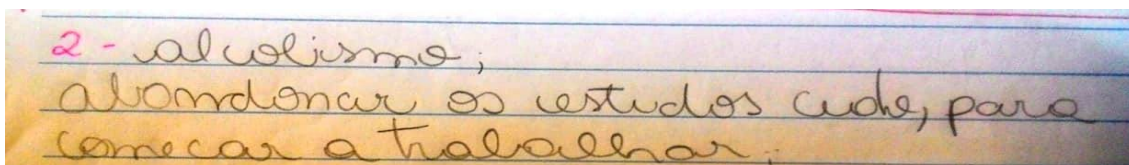 2 - alcolismo;
abandonar os estudos cedo, para
comecar a trabalhar.